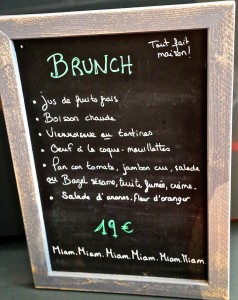 Tout fait
maison!
BRUNCH
• jus de fruits frais
• Boisson chaude
• Viennoiserie ou tartines
• Oeuf à la coque-mouillettes
• Pan con tomate, jambon cru, salade
ou Bagel sésame, truite fumée, crème.
• Salade d'ananas. fleur d'oranger
19€
Miam. Miam. Miam. Miam. Miam. Miam